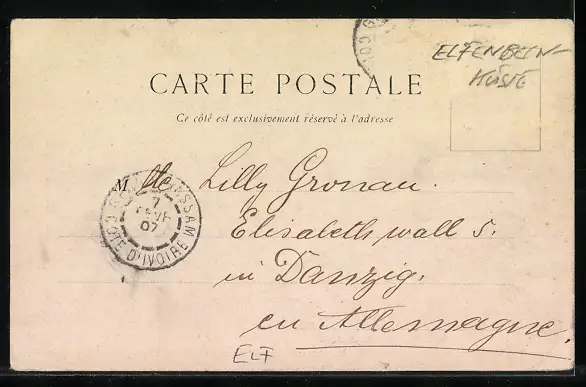 ELFENBEIN-
KÜSTE
CARTE POSTALE
Ce côté est exclusivement réservé à l'adresse
Mlle Lilly Gronau.
Elisabethwall 5.
in Danzig.
en Allemagne.
GRAND BASSAM
7
JANV
07
COTE D'IVOIRE
ELF